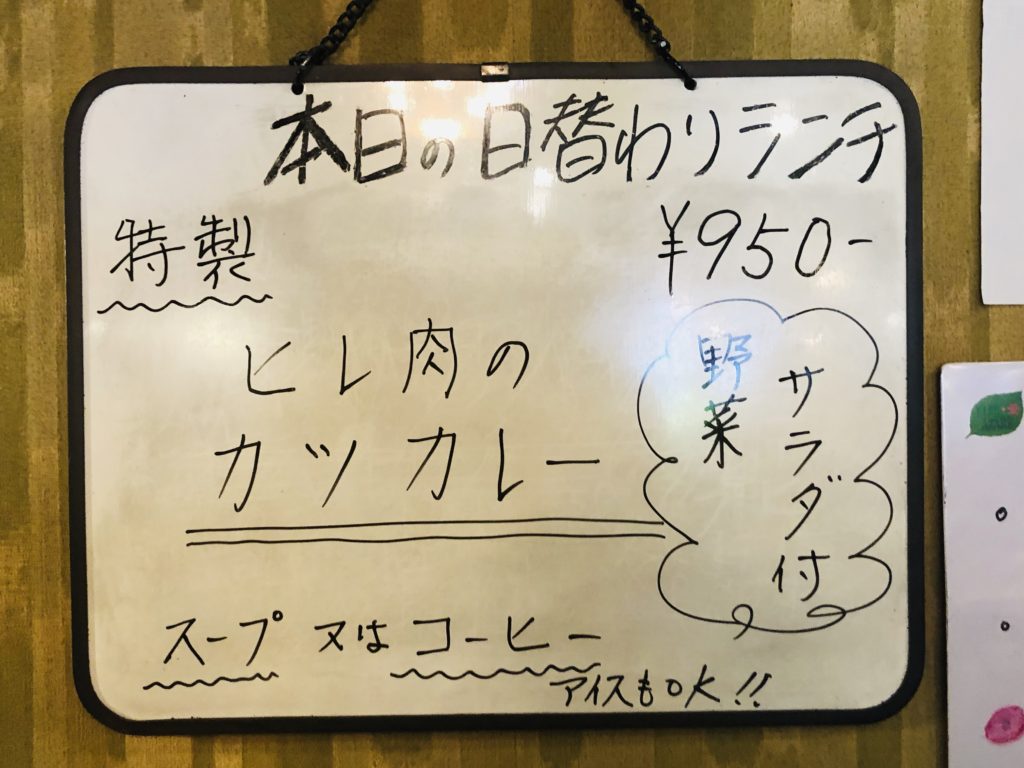 本日の日替わりランチ
¥950-
特製
ヒレ肉の
カツカレー
サラダ付
野菜
スープ 又は コーヒー
アイスもOK!!